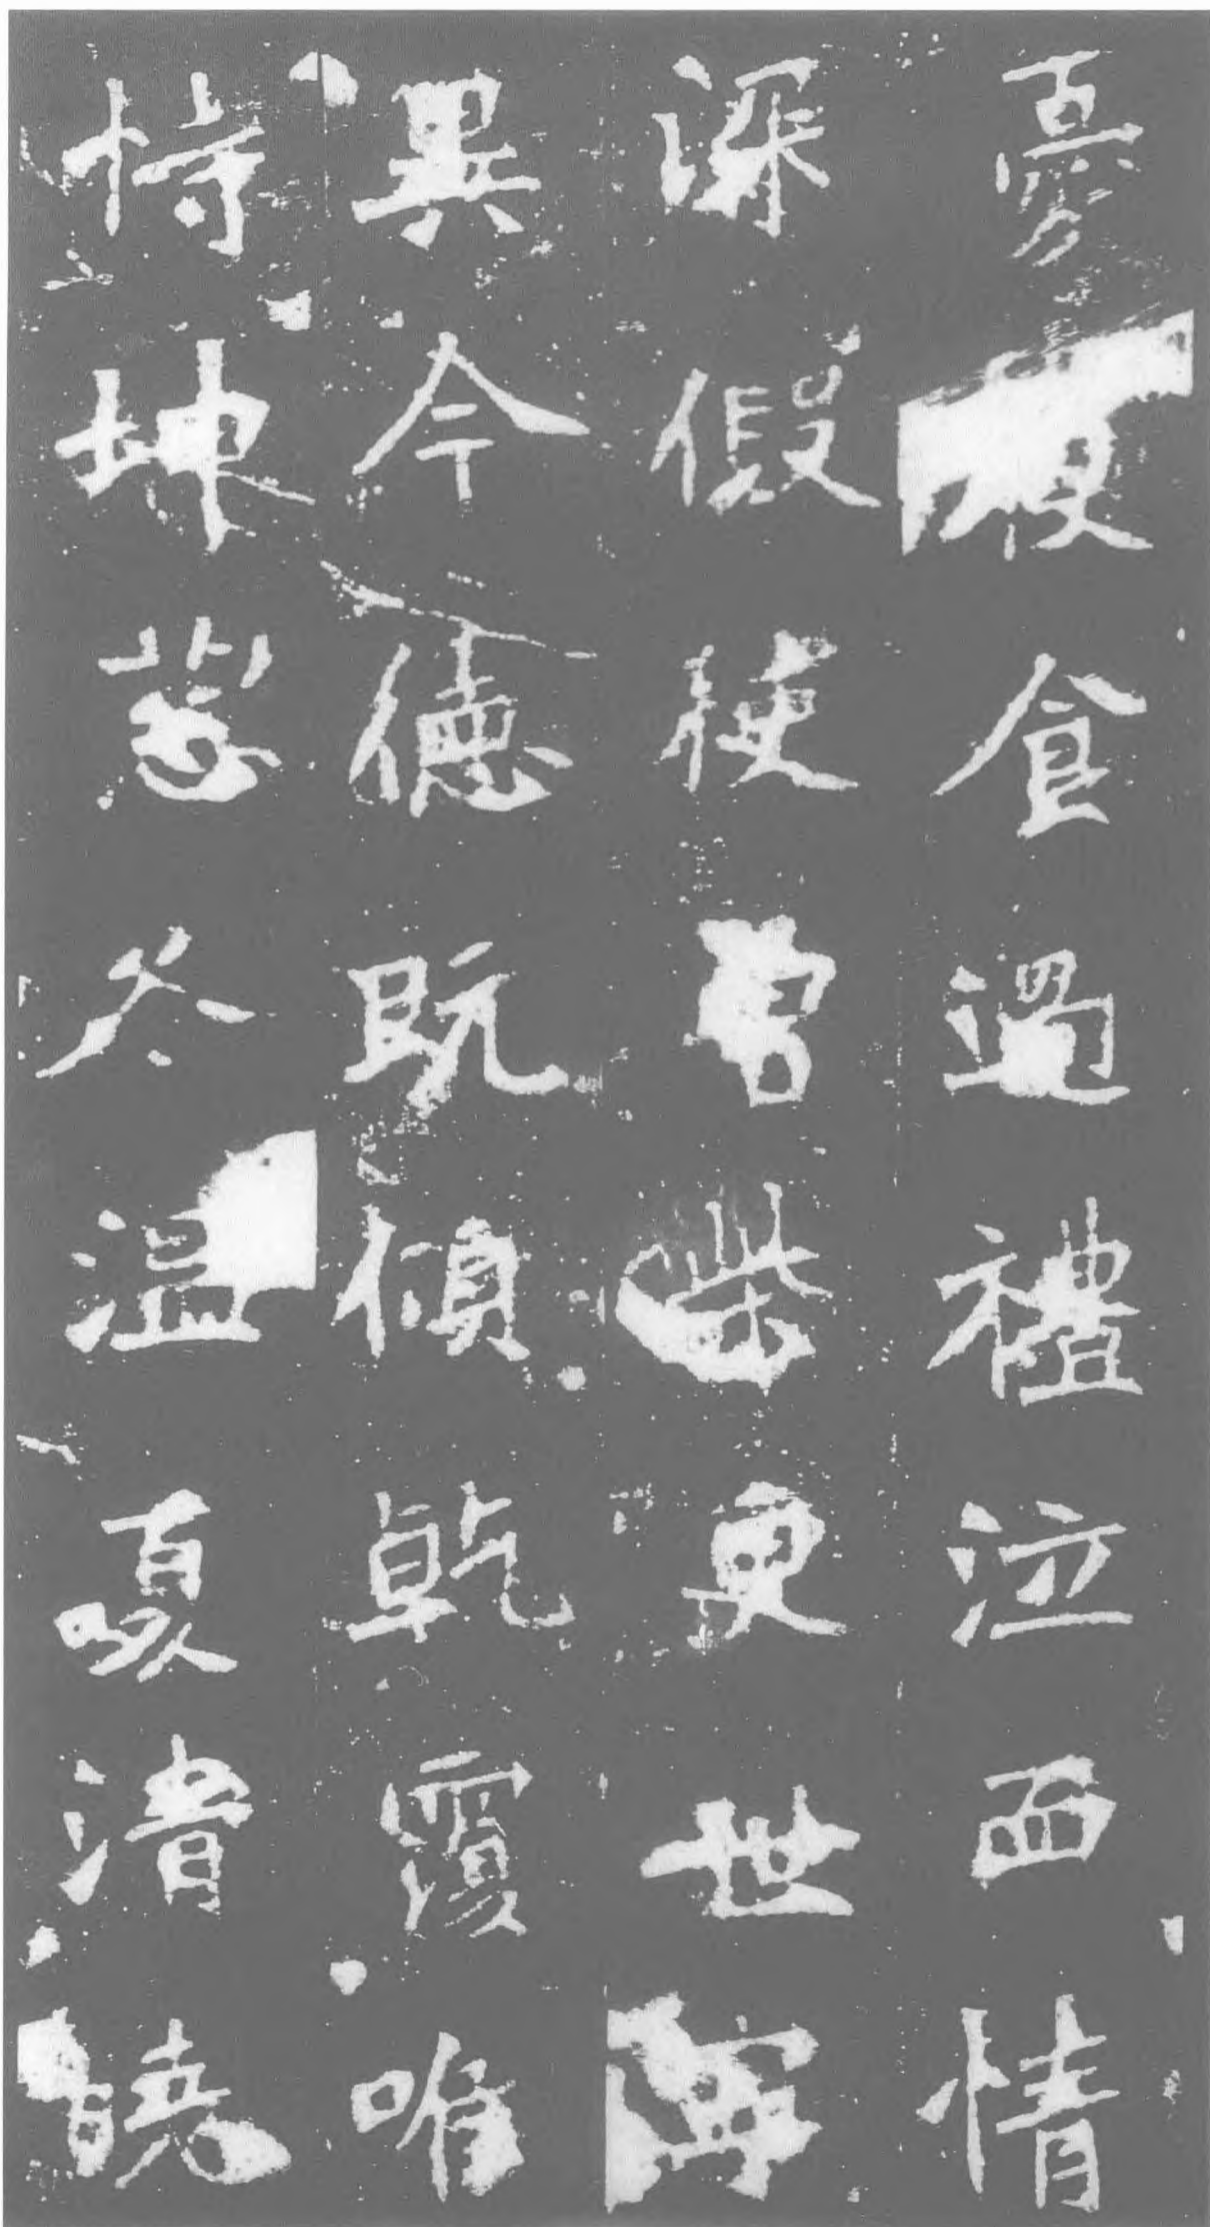 憂寢食過禮泣血情
深假使曾柴更世寧
異今德既傾乾覆唯
恃坤慈冬溫夏清曉